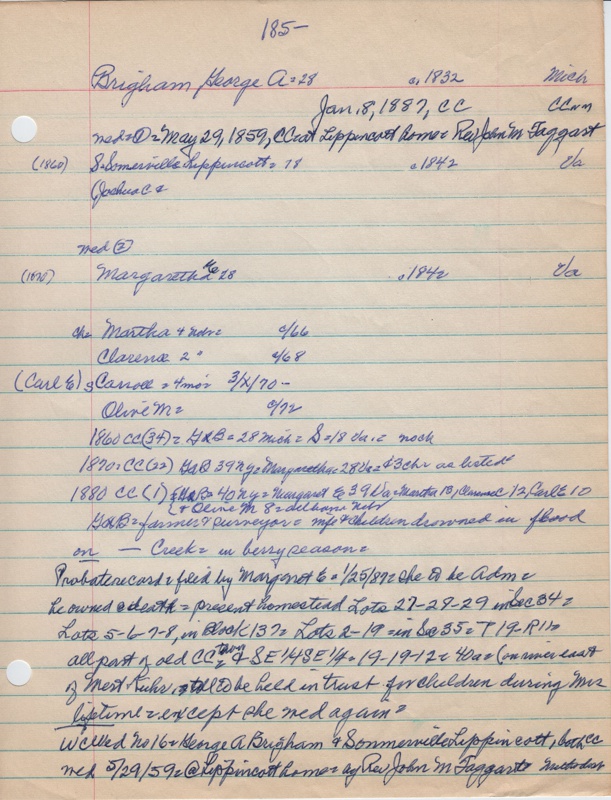 185-
Brigham George A = 28 c, 1832 Mich
Jan. 8, 1887, CC CC
med = ① = May 29, 1859, CC at Lippincott home = Rev John M Taggart
(1860) S = Somerville Lippincott = 18 c 1842 Va
(Joshua C =
med ②
(1870) Margaretha E 28 c 1842 Va
ch = Martha 4 Nebr = c/66
Clarence 2 " c/68
(Carl E) Carroll = 4 mos 3/X/70 -
Olive M = c/72
1860 CC (34) = GAB = 28 Mich = S = 18 Va. = no ch
1870: CC (22) GAB 39 NY = Margaretha = 28 Va = $3 chr as listed
1880 CC (1) GAB = 40 NY = Margaret E 39 Va = Martha 13, Clarence 12, Carl E 10
& Olive M 8 = all born Nebr
GAB = farmer & surveyor = wife & children drowned in flood
on — Creek = in berry season =
Probate record = filed by Margaret E = 1/25/87 = she to be Adm =
he owned @ death = present homestead Lots 27-28-29 in Sec 34 =
Lots 5-6-7-8, in block 137 = Lots 2-19 = in Sec 35 = T 19-R 11 =
all part of old CC twp & SE 1/4 SE 1/4 = 19-19-12 = 40a = (on river east
of Mert Kuhr, to be held in trust for children during Mrs
lifetime = except she med again =
WC Med No 16 = George A Brigham & Sommerville Lippincott, both CC
med 5/29/59 = @ Lippincott home = by Rev John M Taggart Methodist